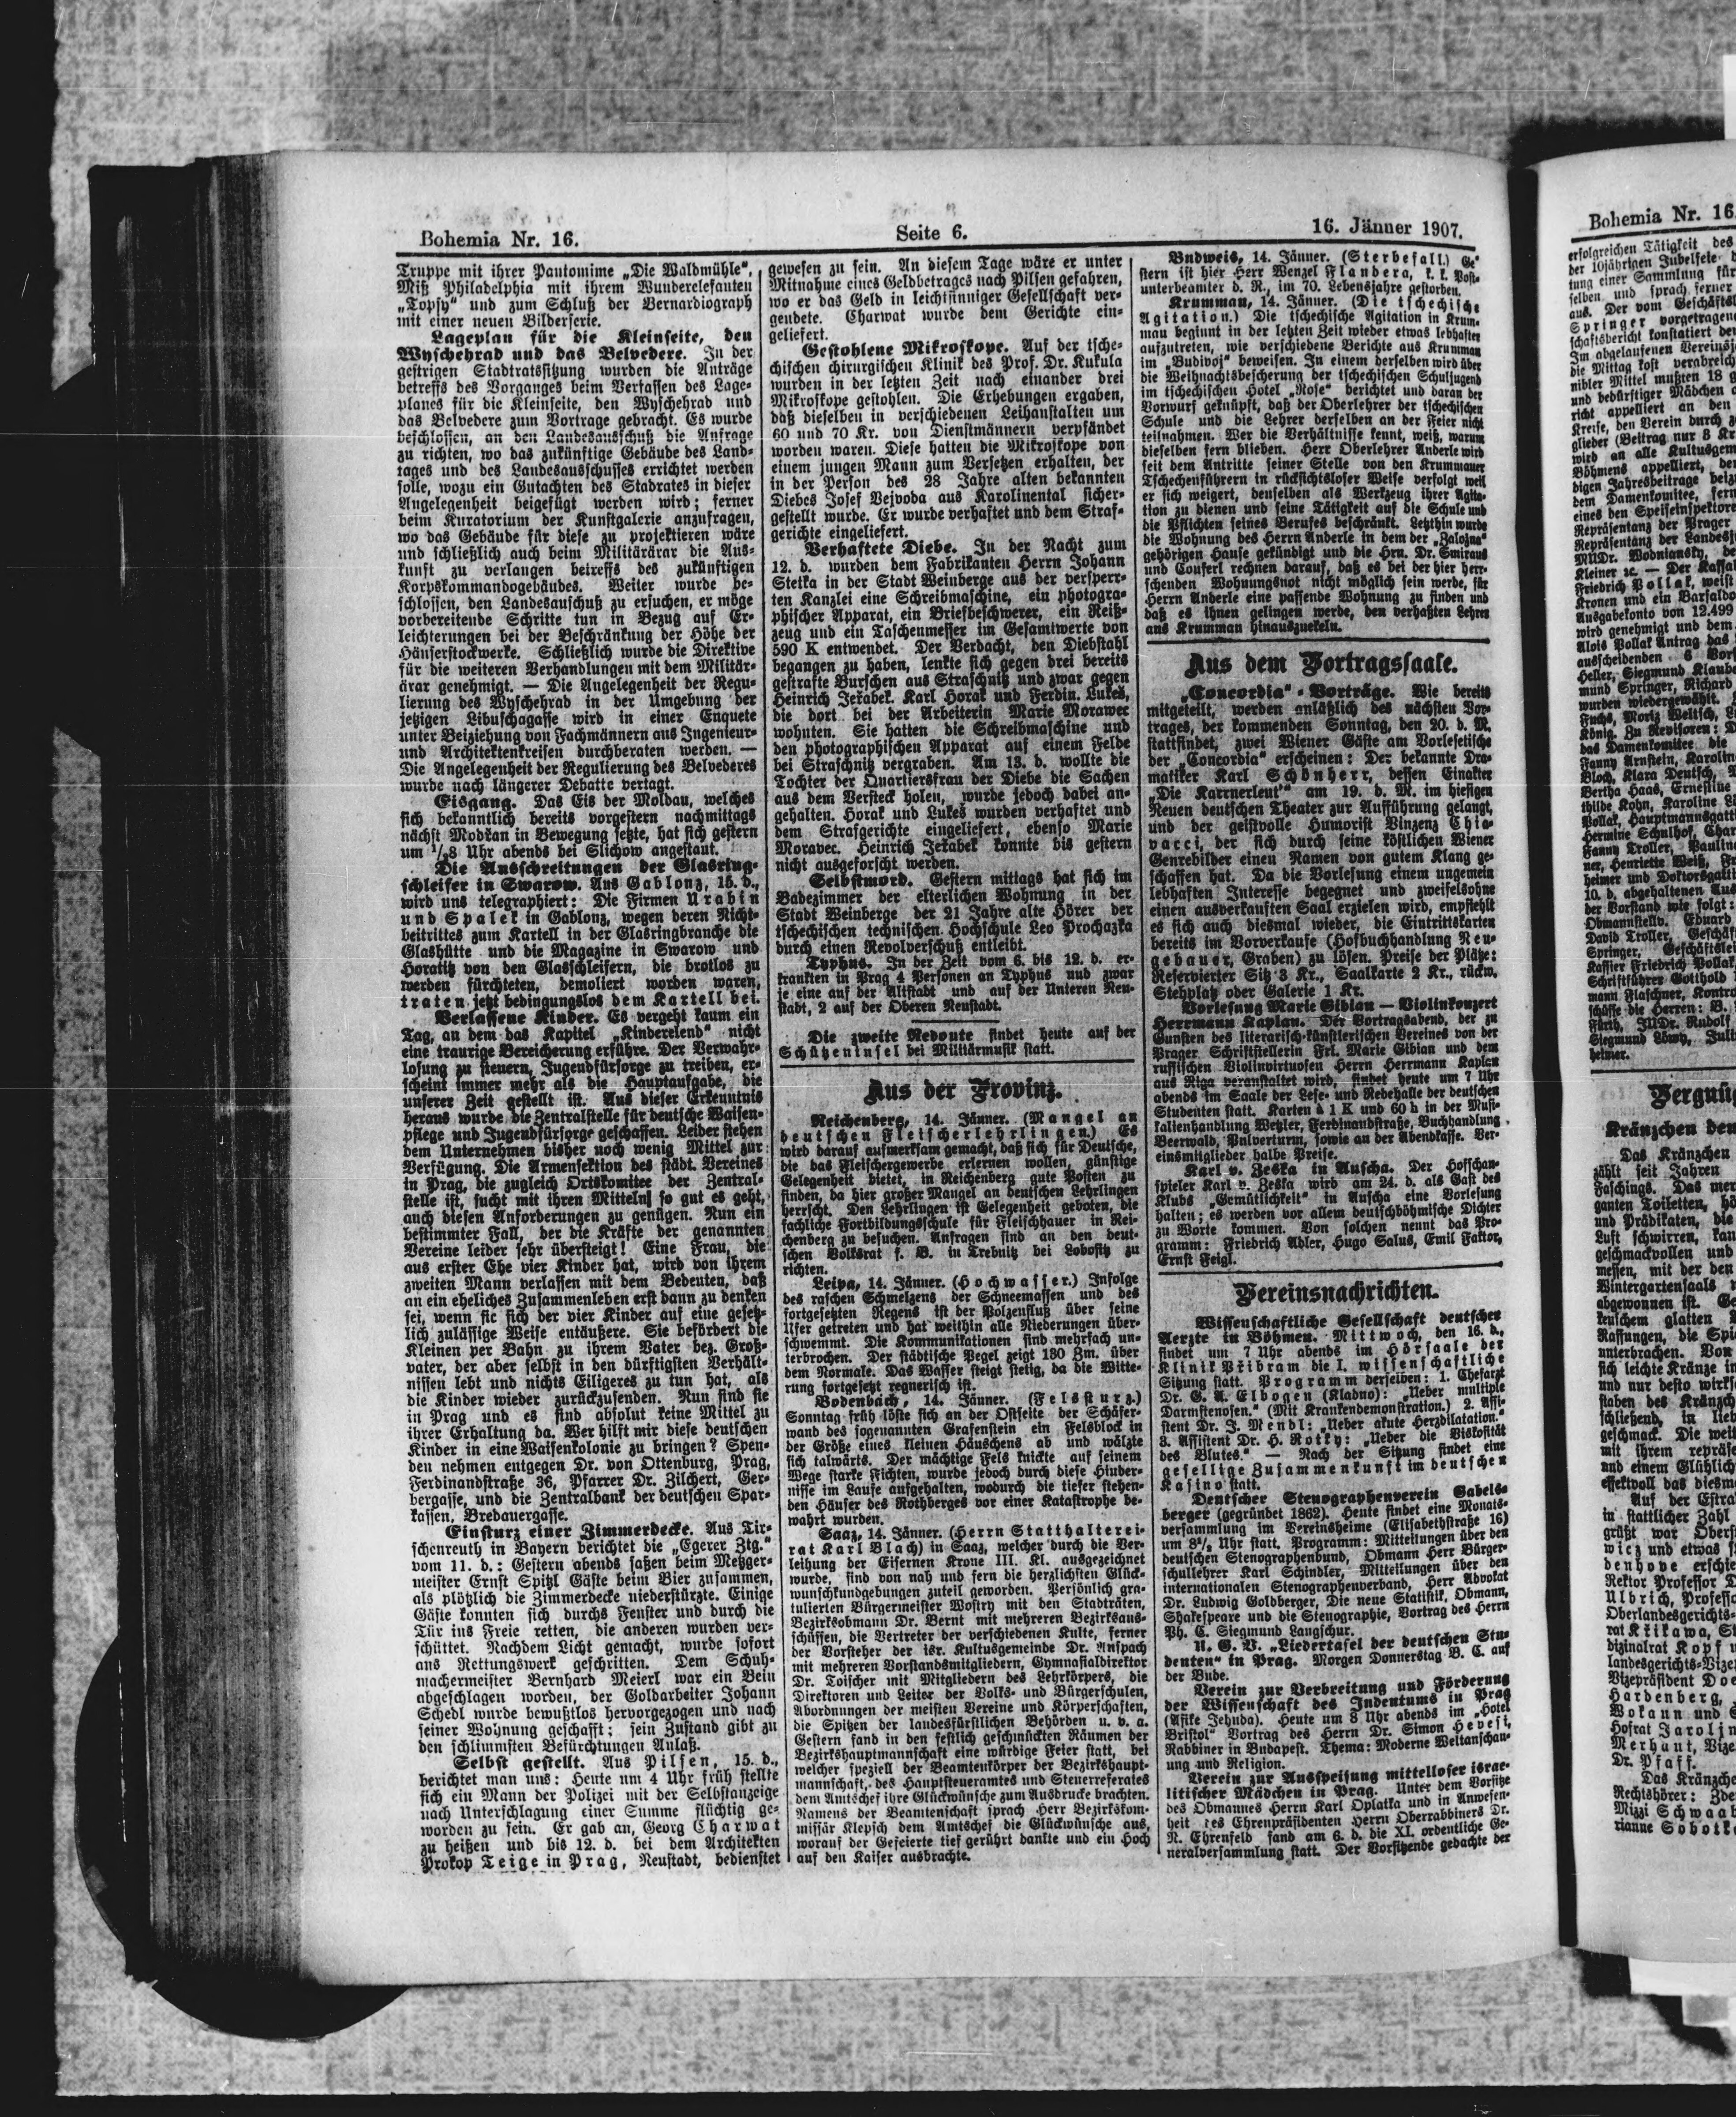 Bohemia Nr. 16.
Seite 6.
16. Jänner 1907.
Truppe mit ihrer Pantomime „Die Waldmühle“,
Miß Philadelphia mit ihrem Wunderelefanten
„Topsy“ und zum Schluß der Bernardiograph
mit einer neuen Bilderserie.
Lageplan für die Kleinseite, den
Wyschehrad und das Belvedere. In der
gestrigen Stadtratssitzung wurden die Anträge
betreffs des Vorganges beim Verfassen des Lage-
planes für die Kleinseite, den Wyschehrad und
das Belvedere zum Vortrage gebracht. Es wurde
beschlossen, an den Landesausschuß die Anfrage
zu richten, wo das zukünftige Gebäude des Land-
tages und des Landesausschusses errichtet werden
solle, wozu ein Gutachten des Stadrates in dieser
Angelegenheit beigefügt werden wird; ferner
beim Kuratorium der Kunstgalerie anzufragen,
wo das Gebäude für diese zu projektieren wäre
und schließlich auch beim Militärärar die Aus-
kunft zu verlangen betreffs des zukünftigen
Korpskommandogebäudes. Weiter wurde be-
schlossen, den Landesauschuß zu ersuchen, er möge
vorbereitende Schritte tun in Bezug auf Er-
leichterungen bei der Beschränkung der Höhe der
Häuserstockwerke. Schließlich wurde die Direktive
für die weiteren Verhandlungen mit dem Militär-
ärar genehmigt. — Die Angelegenheit der Regu-
lierung des Wyschehrad in der Umgebung der
jetzigen Libuschagasse wird in einer Enquete
unter Beiziehung von Fachmännern aus Ingenieur-
und Architektenkreisen durchberaten werden. —
Die Angelegenheit der Regulierung des Belvederes
wurde nach längerer Debatte vertagt.
Eisgang. Das Eis der Moldau, welches
sich bekanntlich bereits vorgestern nachmittags
nächst Modřan in Bewegung setzte, hat sich gestern
um 1/28 Uhr abends bei Slichow angestaut.
Die Ausschreitungen der Glasring-
schleifer in Swarow. Aus Gablonz, 15. d.,
wird uns telegraphiert: Die Firmen Urabin
und Spalek in Gablonz, wegen deren Nicht-
beitrittes zum Kartell in der Glasringbranche die
Glashütte und die Magazine in Swarow und
Horatitz von den Glasschleifern, die brotlos zu
werden fürchteten, demoliert worden waren,
traten jetzt bedingungslos dem Kartell bei.
Verlassene Kinder. Es vergeht kaum ein
Tag, an dem das Kapitel „Kinderelend“ nicht
eine traurige Bereicherung erführe. Der Verwahr-
losung zu steuern, Jugendfürsorge zu treiben, er-
scheint immer mehr als die Hauptaufgabe, die
unserer Zeit gestellt ist. Aus dieser Erkenntnis
heraus wurde die Zentralstelle für deutsche Waisen-
pflege und Jugendfürsorge geschaffen. Leider stehen
dem Unternehmen bisher noch wenig Mittel zur
Verfügung. Die Armensektion des städt. Vereines
in Prag, die zugleich Ortskomitee der Zentral-
stelle ist, sucht mit ihren Mitteln so gut es geht,
auch diesen Anforderungen zu genügen. Nun ein
bestimmter Fall, der die Kräfte der genannten
Vereine leider sehr übersteigt! Eine Frau, die
aus erster Ehe vier Kinder hat, wird von ihrem
zweiten Mann verlassen mit dem Bedeuten, daß
an ein eheliches Zusammenleben erst dann zu denken
sei, wenn sie sich der vier Kinder auf eine gesetz-
lich zulässige Weise entäußere. Sie befördert die
Kleinen per Bahn zu ihrem Vater bez. Groß-
vater, der aber selbst in den dürftigsten Verhält-
nissen lebt und nichts Eiligeres zu tun hat, als
die Kinder wieder zurückzusenden. Nun sind sie
in Prag und es sind absolut keine Mittel zu
ihrer Erhaltung da. Wer hilft mir diese deutschen
Kinder in eine Waisenkolonie zu bringen? Spen-
den nehmen entgegen Dr. von Ottenburg, Prag,
Ferdinandstraße 36, Pfarrer Dr. Zilchert, Ger-
bergasse, und die Zentralbank der deutschen Spar-
kassen, Bredauergasse.
Einsturz einer Zimmerdecke. Aus Tir-
schenreuth in Bayern berichtet die „Egerer Ztg.“
vom 11. d.: Gestern abends saßen beim Metzger-
meister Ernst Spitzl Gäste beim Bier zusammen,
als plötzlich die Zimmerdecke niederstürzte. Einige
Gäste konnten sich durchs Fenster und durch die
Tür ins Freie retten, die anderen wurden ver-
schüttet. Nachdem Licht gemacht, wurde sofort
ans Rettungswerk geschritten. Dem Schuh-
machermeister Bernhard Meierl war ein Bein
abgeschlagen worden, der Goldarbeiter Johann
Schedl wurde bewußtlos hervorgezogen und nach
seiner Wohnung geschafft; sein Zustand gibt zu
den schlimmsten Befürchtungen Anlaß.
Selbst gestellt. Aus Pilsen, 15. d.,
berichtet man uns: Heute um 4 Uhr früh stellte
sich ein Mann der Polizei mit der Selbstanzeige
nach Unterschlagung einer Summe flüchtig ge-
worden zu sein. Er gab an, Georg Charwat
zu heißen und bis 12. d. bei dem Architekten
Prokop Teige in Prag, Neustadt, bedienstet
gewesen zu sein. An diesem Tage wäre er unter
Mitnahme eines Geldbetrages nach Pilsen gefahren,
wo er das Geld in leichtsinniger Gesellschaft ver-
geudete. Charwat wurde dem Gerichte ein-
geliefert.
Gestohlene Mikroskope. Auf der tsche-
chischen chirurgischen Klinik des Prof. Dr. Kukula
wurden in der letzten Zeit nach einander drei
Mikroskope gestohlen. Die Erhebungen ergaben,
daß dieselben in verschiedenen Leihanstalten um
60 und 70 Kr. von Dienstmännern verpfändet
worden waren. Diese hatten die Mikroskope von
einem jungen Mann zum Versetzen erhalten, der
in der Person des 28 Jahre alten bekannten
Diebes Josef Vejvoda aus Karolinental sicher-
gestellt wurde. Er wurde verhaftet und dem Straf-
gerichte eingeliefert.
Verhaftete Diebe. In der Nacht zum
12. d. wurden dem Fabrikanten Herrn Johann
Stetka in der Stadt Weinberge aus der versperr-
ten Kanzlei eine Schreibmaschine, ein photogra-
phischer Apparat, ein Briefbeschwerer, ein Reiß-
zeug und ein Taschenmesser im Gesamtwerte von
590 K entwendet. Der Verdacht, den Diebstahl
begangen zu haben, lenkte sich gegen drei bereits
gestrafte Burschen aus Straschnitz und zwar gegen
Heinrich Jeřabek, Karl Horak und Ferdin. Lukeš,
die dort bei der Arbeiterin Marie Morawec
wohnten. Sie hatten die Schreibmaschine und
den photographischen Apparat auf einem Felde
bei Straschnitz vergraben. Am 13. d. wollte die
Tochter der Quartiersfrau der Diebe die Sachen
aus dem Versteck holen, wurde jedoch dabei an-
gehalten. Horak und Lukeš wurden verhaftet und
dem Strafgerichte eingeliefert, ebenso Marie
Moravec. Heinrich Jeřabek konnte bis gestern
nicht ausgeforscht werden.
Selbstmord. Gestern mittags hat sich im
Badezimmer der elterlichen Wohnung in der
Stadt Weinberge der 21 Jahre alte Hörer der
tschechischen technischen Hochschule Leo Prochazka
durch einen Revolverschuß entleibt.
Typhus. In der Zeit vom 6. bis 12. d. er-
krankten in Prag 4 Personen an Typhus und zwar
je eine auf der Altstadt und auf der Unteren Neu-
stadt, 2 auf der Oberen Neustadt.
Die zweite Redoute findet heute auf der
Schützeninsel bei Militärmusik statt.
Aus der Provinz.
Reichenberg, 14. Jänner. (Mangel an
deutschen Fleischerlehrlingen.) Es
wird darauf aufmerksam gemacht, daß sich für Deutsche,
die das Fleischergewerbe erlernen wollen, günstige
Gelegenheit bietet, in Reichenberg gute Posten zu
finden, da hier großer Mangel an deutschen Lehrlingen
herrscht. Den Lehrlingen ist Gelegenheit geboten, die
fachliche Fortbildungsschule für Fleischhauer in Rei-
chenberg zu besuchen. Anfragen sind an den deut-
schen Volksrat f. B. in Trebnitz bei Lobositz zu
richten.
Leipa, 14. Jänner. (Hochwasser.) Infolge
des raschen Schmelzens der Schneemassen und des
fortgesetzten Regens ist der Polzenfluß über seine
Ufer getreten und hat weithin alle Niederungen über-
schwemmt. Die Kommunikationen sind mehrfach un-
terbrochen. Der städtische Pegel zeigt 180 Zm. über
dem Normale. Das Wasser steigt stetig, da die Witte-
rung fortgesetzt regnerisch ist.
Bodenbach, 14. Jänner. (Felssturz.)
Sonntag früh löste sich an der Ostseite der Schäfer-
wand des sogenannten Grafenstein ein Felsblock in
der Größe eines kleinen Häuschens ab und wälzte
sich talwärts. Der mächtige Fels knickte auf seinem
Wege starke Fichten, wurde jedoch durch diese Hinder-
nisse im Laufe aufgehalten, wodurch die tiefer stehen-
den Häuser des Rothberges vor einer Katastrophe be-
wahrt wurden.
Saaz, 14. Jänner. (Herrn Statthalterei-
rat Karl Blach) in Saaz, welcher durch die Ver-
leihung der Eisernen Krone III. Kl. ausgezeichnet
wurde, sind von nah und fern die herzlichsten Glück-
wunschkundgebungen zuteil geworden. Persönlich gra-
tulierten Bürgermeister Wostry mit den Stadträten,
Bezirksobmann Dr. Bernt mit mehreren Bezirksaus-
schüssen, die Vertreter der verschiedenen Kulte, ferner
der Vorsteher der isr. Kultusgemeinde Dr. Anspach
mit mehreren Vorstandsmitgliedern, Gymnasialdirektor
Dr. Toischer mit Mitgliedern des Lehrkörpers, die
Direktoren und Leiter der Volks- und Bürgerschulen,
Abordnungen der meisten Vereine und Körperschaften,
die Spitzen der landesfürstlichen Behörden u. v. a.
Gestern fand in den festlich geschmückten Räumen der
Bezirkshauptmannschaft eine würdige Feier statt, bei
welcher speziell der Beamtenkörper der Bezirkshaupt-
mannschaft, des Hauptsteueramtes und Steuerreferates
dem Amtschef ihre Glückwünsche zum Ausdrucke brachten.
Namens der Beamtenschaft sprach Herr Bezirkskom-
missär Klepsch dem Amtschef die Glückwünsche aus,
worauf der Gefeierte tief gerührt dankte und ein Hoch
auf den Kaiser ausbrachte.
Budweis, 14. Jänner. (Sterbefall.) Ge-
stern ist hier Herr Wenzel Flandera, k. k. Post-
unterbeamter d. R., im 70. Lebensjahre gestorben.
Krummau, 14. Jänner. (Die tschechische
Agitation.) Die tschechische Agitation in Krum-
mau beginnt in der letzten Zeit wieder etwas lebhafter
aufzutreten, wie verschiedene Berichte aus Krummau
im „Budivoj“ beweisen. In einem derselben wird über
die Weihnachtsbescherung der tschechischen Schuljugend
im tschechischen Hotel „Rose“ berichtet und daran der
Vorwurf geknüpft, daß der Oberlehrer der tschechischen
Schule und die Lehrer derselben an der Feier nicht
teilnahmen. Wer die Verhältnisse kennt, weiß, warum
dieselben fern blieben. Herr Oberlehrer Anderle wird
seit dem Antritte seiner Stelle von den Krummauer
Tschechenführern in rücksichtsloser Weise verfolgt weil
er sich weigert, denselben als Werkzeug ihrer Agita-
tion zu dienen und seine Tätigkeit auf die Schule und
die Pflichten seines Berufes beschränkt. Letzthin wurde
die Wohnung des Herrn Anderle in dem der „Založna“
gehörigen Hause gekündigt und die Hrn. Dr. Smiraus
und Couferl rechnen darauf, daß es bei der hier herr-
schenden Wohnungsnot nicht möglich sein werde, für
Herrn Anderle eine passende Wohnung zu finden und
daß es ihnen gelingen werde, den verhaßten Lehrer
aus Krummau hinauszuekeln.
Aus dem Vortragssaale.
„Concordia“-Vorträge. Wie bereits
mitgeteilt, werden anläßlich des nächsten Vor-
trages, der kommenden Sonntag, den 20. d. M.
stattfindet, zwei Wiener Gäste am Vorlesetische
der „Concordia“ erscheinen: Der bekannte Dra-
matiker Karl Schönherr, dessen Einakter
„Die Karrnerleut’“ am 19. d. M. im hiesigen
Neuen deutschen Theater zur Aufführung gelangt,
und der geistvolle Humorist Vinzenz Chia-
vacci, der sich durch seine köstlichen Wiener
Genrebilder einen Namen von gutem Klang ge-
schaffen hat. Da die Vorlesung einem ungemein
lebhaften Interesse begegnet und zweifelsohne
einen ausverkauften Saal erzielen wird, empfiehlt
es sich auch diesmal wieder, die Eintrittskarten
bereits im Vorverkaufe (Hofbuchhandlung Neu-
gebauer, Graben) zu lösen. Preise der Plätze:
Reservierter Sitz 3 Kr., Saalkarte 2 Kr., rückw.
Stehplatz oder Galerie 1 Kr.
Vorlesung Marie Gibian — Violinkonzert
Herrmann Kaplan. Der Vortragsabend, der zu
Gunsten des literarisch-künstlerischen Vereines von der
Prager Schriftstellerin Frl. Marie Gibian und dem
russischen Violinvirtuosen Herrn Herrmann Kaplan
aus Riga veranstaltet wird, findet heute um 7 Uhr
abends im Saale der Lese- und Redehalle der deutschen
Studenten statt. Karten à 1 K und 60 h in der Musi-
kalienhandlung Wetzler, Ferdinandstraße, Buchhandlung
Beerwald, Pulverturm, sowie an der Abendkasse. Ver-
einsmitglieder halbe Preise.
Karl v. Zeska in Auscha. Der Hofschau-
spieler Karl v. Zeska wird am 24. d. als Gast des
Klubs „Gemütlichkeit“ in Auscha eine Vorlesung
halten; es werden vor allem deutschböhmische Dichter
zu Worte kommen. Von solchen nennt das Pro-
gramm: Friedrich Adler, Hugo Salus, Emil Faktor,
Ernst Feigl.
Vereinsnachrichten.
Wissenschaftliche Gesellschaft deutscher
Aerzte in Böhmen. Mittwoch, den 16. d.,
findet um 7 Uhr abends im Hörsaale der
Klinik Přibram die I. wissenschaftliche
Sitzung statt. Programm derselben: 1. Chefarzt
Dr. G. A. Elbogen (Kladno): „Ueber multiple
Darmstenosen.“ (Mit Krankendemonstration.) 2. Assi-
stent Dr. J. Mendl: „Ueber akute Herzdilatation.“
3. Assistent Dr. H. Rotky: „Ueber die Viskosität
des Blutes.“ — Nach der Sitzung findet eine
gesellige Zusammenkunft im deutschen
Kasino statt.
Deutscher Stenographenverein Gabels-
berger (gegründet 1862). Heute findet eine Monats-
versammlung im Vereinsheime (Elisabethstraße 16)
um 8 1/2 Uhr statt. Programm: Mitteilungen über den
deutschen Stenographenbund, Obmann Herr Bürger-
schullehrer Karl Schindler, Mitteilungen über den
internationalen Stenographenverband, Herr Advokat
Dr. Ludwig Goldberger, Die neue Statistik, Obmann,
Shakespeare und die Stenographie, Vortrag des Herrn
Ph. C. Siegmund Langschur.
U. G. V. „Liedertafel der deutschen Stu-
denten“ in Prag. Morgen Donnerstag B. C. auf
der Bude.
Verein zur Verbreitung und Förderung
der Wissenschaft des Judentums in Prag
(Afike Jehuda). Heute um 8 Uhr abends im „Hotel
Bristol“ Vortrag des Herrn Dr. Simon Hevesi,
Rabbiner in Budapest. Thema: Moderne Weltanschau-
ung und Religion.
Verein zur Ausspeisung mittelloser israe-
litischer Mädchen in Prag. Unter dem Vorsitze
des Obmannes Herrn Karl Oplatka und in Anwesen-
heit des Ehrenpräsidenten Herrn Oberrabbiners Dr.
N. Ehrenfeld fand am 6. d. die XI. ordentliche Ge-
neralversammlung statt. Der Vorsitzende gedachte der
Bohemia Nr. 16
erfolgreichen Tätigkeit des
der 10jährigen Jubelfeie
tung einer Sammlung für
selben und sprach ferner
aus. Der vom Geschäfts
Springer vorgetragene
schaftsbericht konstatiert
Im abgelaufenen Vereins
die Mittag kost verabreich
nibler Mittel mußten 18
und bedürftiger Mädchen
richt appelliert an den
Kreise, den Verein durch
glieder (Beitrag nur 8 Kr
wird an alle Kultusgem
Böhmens appelliert,
digen Jahresbeitrage
dem Damenkomitee,
eines den Speiseinspektore
Repräsentanz der Prager
Repräsentanz der Landes
MUDr. Wodniansky,
Kleiner ꝛc. — Der Kassa
Friedrich Pollak, weist
Kronen und ein Barsaldo
Ausgabekonto von 12.499
wird genehmigt und dem
Alois Pollak Antrag das
ausscheidenden 6 Vors
Heller, Siegmund Klaube
mund Springer, Richard
wurden wiedergewählt.
Fuchs, Moriz Weltsch,
König. Zu Revisoren:
das Damenkomitee die
Fanny Arnstein, Karolin
Bloch, Klara Deutsch,
Bertha Haas, Ernestine
thilde Kohn, Karoline
Pollak, Hauptmannsgatt
Hermine Schulhof, Char
Fanny Troller, Pauline
ner, Henriette Weiß,
heimer und Doktorsgatt
10. d. abgehaltenen Aus
der Vorstand wie folgt:
Obmannstellv. Eduard
David Troller, Geschäf
Springer, Geschäftslei
Kassier Friedrich Pollak,
Schriftführer Gotthold
mann Flaschner, Kontro
schüsse die Herren: B.
Fürth, JUDr. Rudolf
Siegmund Löwy, Juli
heimer.
Vergnüg
Kränzchen
Das Kränzchen
zählt seit Jahren
Faschings. Das
ganten Toiletten,
und Prädikaten, die
Luft schwirren,
geschmackvollen und
messen, mit der den
Wintergartensaals
abgewonnen ist.
keuschem glatten
Raffungen, die
unterbrachen. Von
sich leichte Kränze in
und nur desto wirks
staben des Kränzch
schließend, in lieb
geschmack. Die weit
mit ihrem repräse
und einem Glühlich
effektvoll das diesm
Auf der Estra
in stattlicher Zahl
grüßt war Obers
wicz und etwas
denhove erschie
Rektor Professor
Ulbrich, Profess
Oberlandesgerichts-
rat Křikawa,
dizinalrat Kopf
landesgerichts-Vize
Vizepräsident
Hardenberg,
Wokaun und
Hofrat Jarolin
Merhaut, Vize
Dr. Pfaff.
Das Kränzche
Rechtshörer:
Mizzi Schwaab
rianne Sobotk